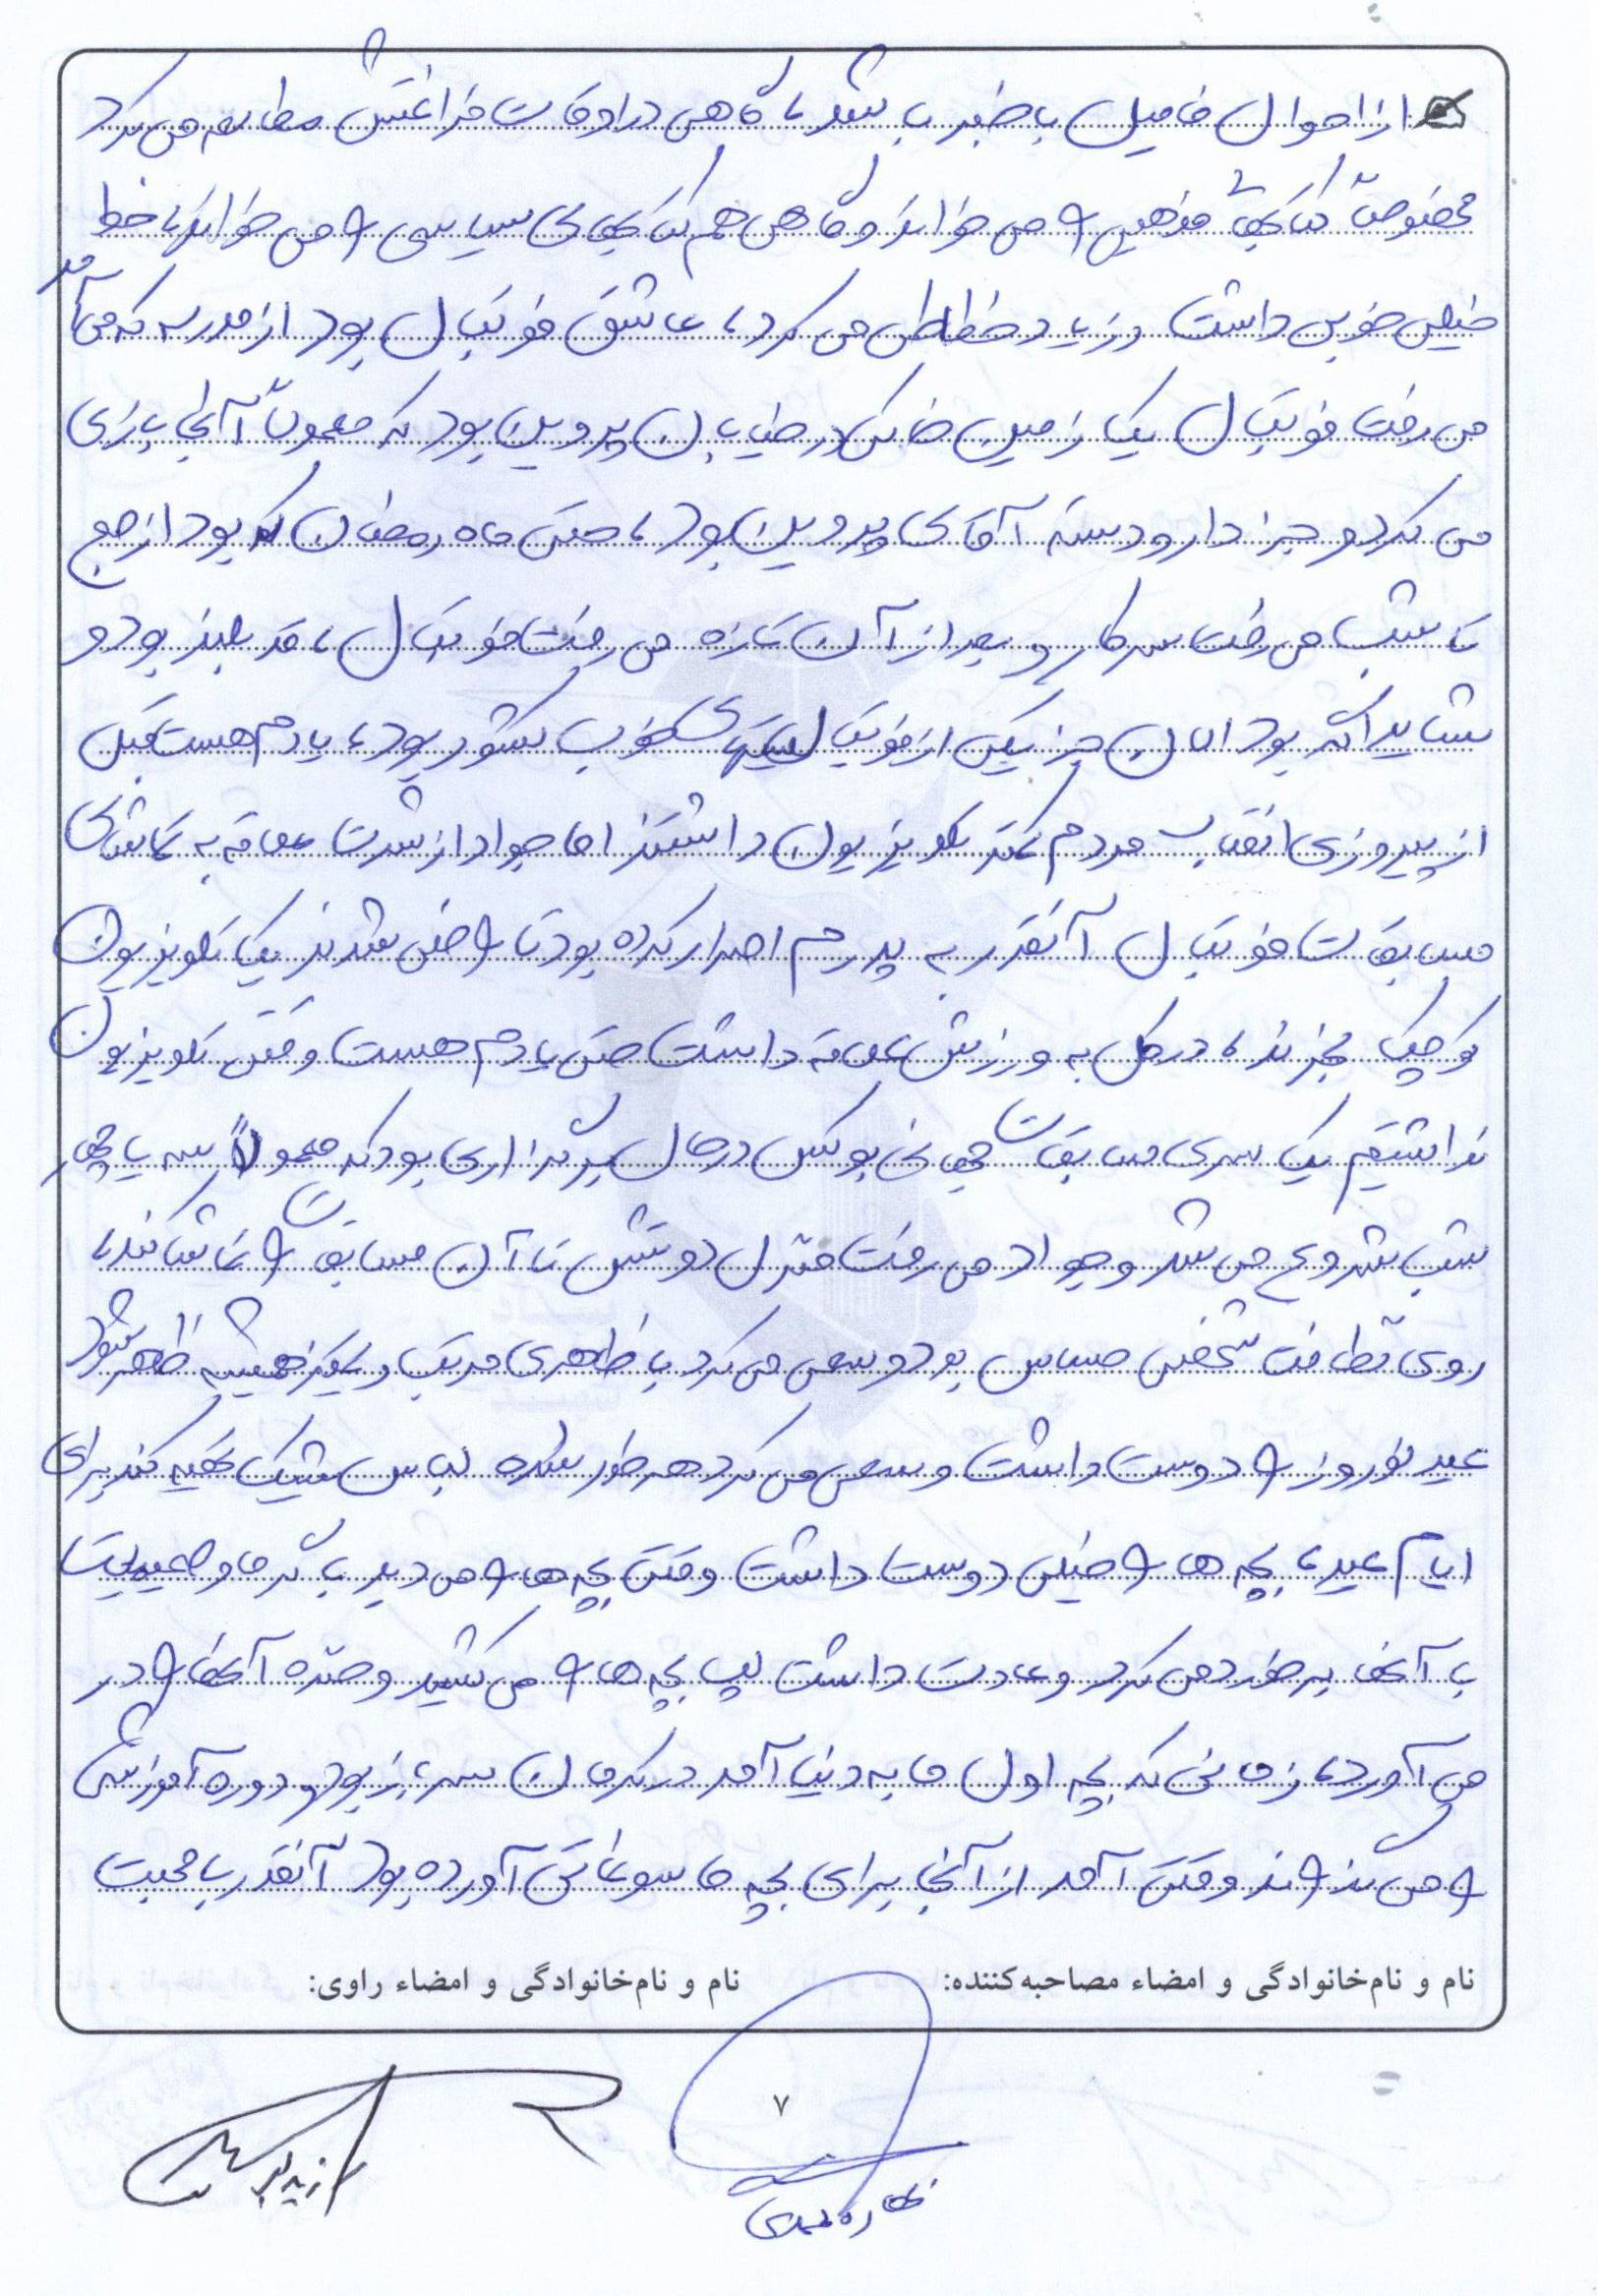 از احوال فامیل باخبر باشد، گاهی در اوقات فراغتش مطالعه می کرد
مخصوصاً کتابهای مذهبی را می خواند و گاهی هم کتابهای سیاسی را می خواند، خط
خیلی خوبی داشت و زیاد خطاطی می کرد، عاشق فوتبال بود از مدرسه که می آمد
می رفت فوتبال یک زمین خاکی در خیابان پروین بود که معمولاً آنجا بازی
می کرد و جز دار و دسته آقای پروین بود، حتی ماه رمضان که بود از صبح
تا شب می رفت سرکار و بعد از آن تازه می رفت فوتبال، قد بلند بود و
شاید اگر بود الان جز یکی از فوتبالیستهای خوب کشور بود، یادم هست قبل
از پیروزی انقلاب مردم کمتر تلویزیون داشتند اما جواد از شدت علاقه به تماشای
مسابقات فوتبال آنقدر به پدرم اصرار کرده بود تا راضی شدند یک تلویزیون
کوچک بخرند، در کل به ورزش علاقه داشت حتی یادم هست وقتی تلویزیون
نداشتیم یک سری مسابقات جهانی بوکس در حال برگزاری بود که معمولاً سه یا چهار
شب شروع می شد و جواد می رفت منزل دوستش تا آن مسابقات را تماشا کند،
روی نظافت شخصی حساس بود و سعی می کرد با ظاهری مرتب و تمیز همیشه ظاهر شود
عید نوروز را دوست داشت و سعی می کرد هر طور شده لباس شیک تهیه کند برای
ایام عید، بچه ها را خیلی دوست داشت وقتی بچه ها را می دید با گرما و صمیمیت
با آنها برخورد می کرد و عادت داشت لپ بچه ها را می کشید و خنده آنها را در
می آورد، زمانی که بچه اول ما به دنیا آمد در کرمان سرباز بود و دوره آموزشی
را می گذراند وقتی آمد از آنجا برای بچه ما سوغاتی آورده بود آنقدر با محبت
نام و نام‌خانوادگی و امضاء مصاحبه‌کننده: نام و نام‌خانوادگی و امضاء راوی:
۷